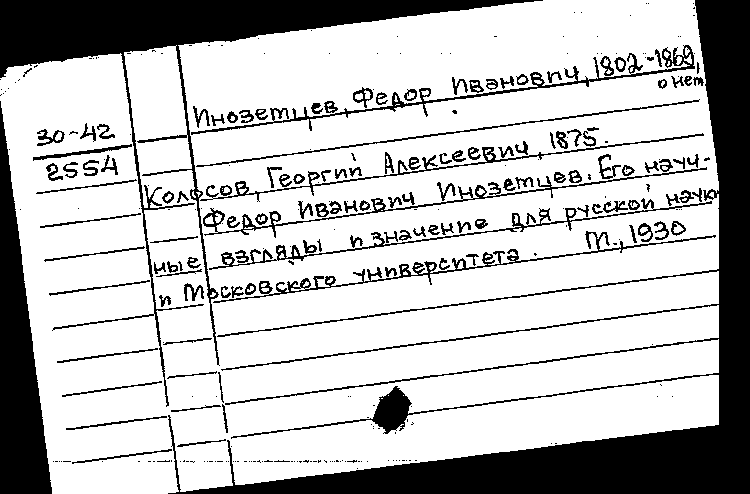 Иноземцев, Федор Иванович, 1802-1869,
о нем
30-42
2554
Колосов, Георгий Алексеевич, 1875.
Федор Иванович Иноземцев. Его науч-
ные взгляды и значение для русской науки
и Московского университета. М., 1930